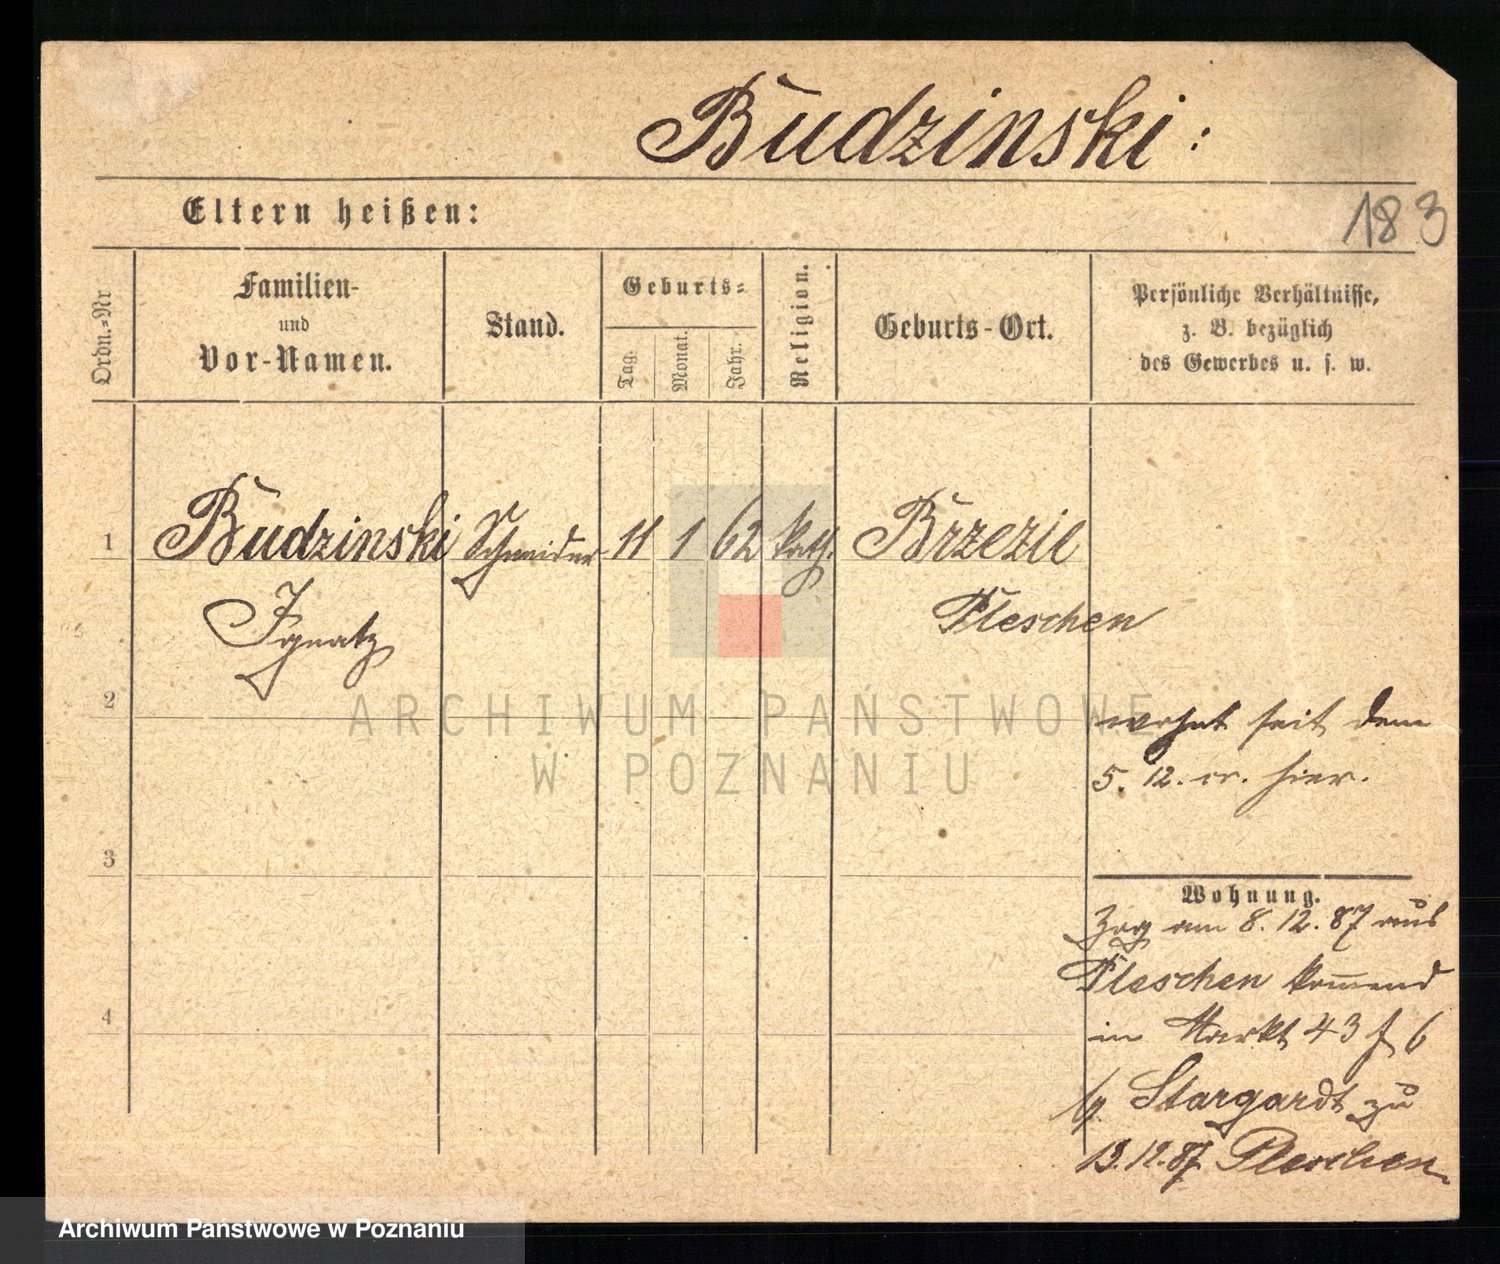 Budzinski:
Eltern heißen:
183
Ordn.-Nr
Familien-
und
Vor-Namen.
Stand.
Geburts-
Tag.
Monat.
Jahr.
Religion.
Geburts-Ort.
Persönliche Verhältnisse,
z. B. bezüglich
des Gewerbes u. s. w.
1
Budzinski Schneider 11 1 62 kath. Brzezie
Ignatz
Pleschen
2
wohnt seit dem
5. 12. cr. hier.
3
Wohnung.
Zog am 8. 12. 87 aus
Pleschen kommend
in Markt 43
4
6
Stargardt zu
13. 12. 87 Pleschen
ARCHIWUM PAŃSTWOWE
W POZNANIU
Archiwum Państwowe w Poznaniu